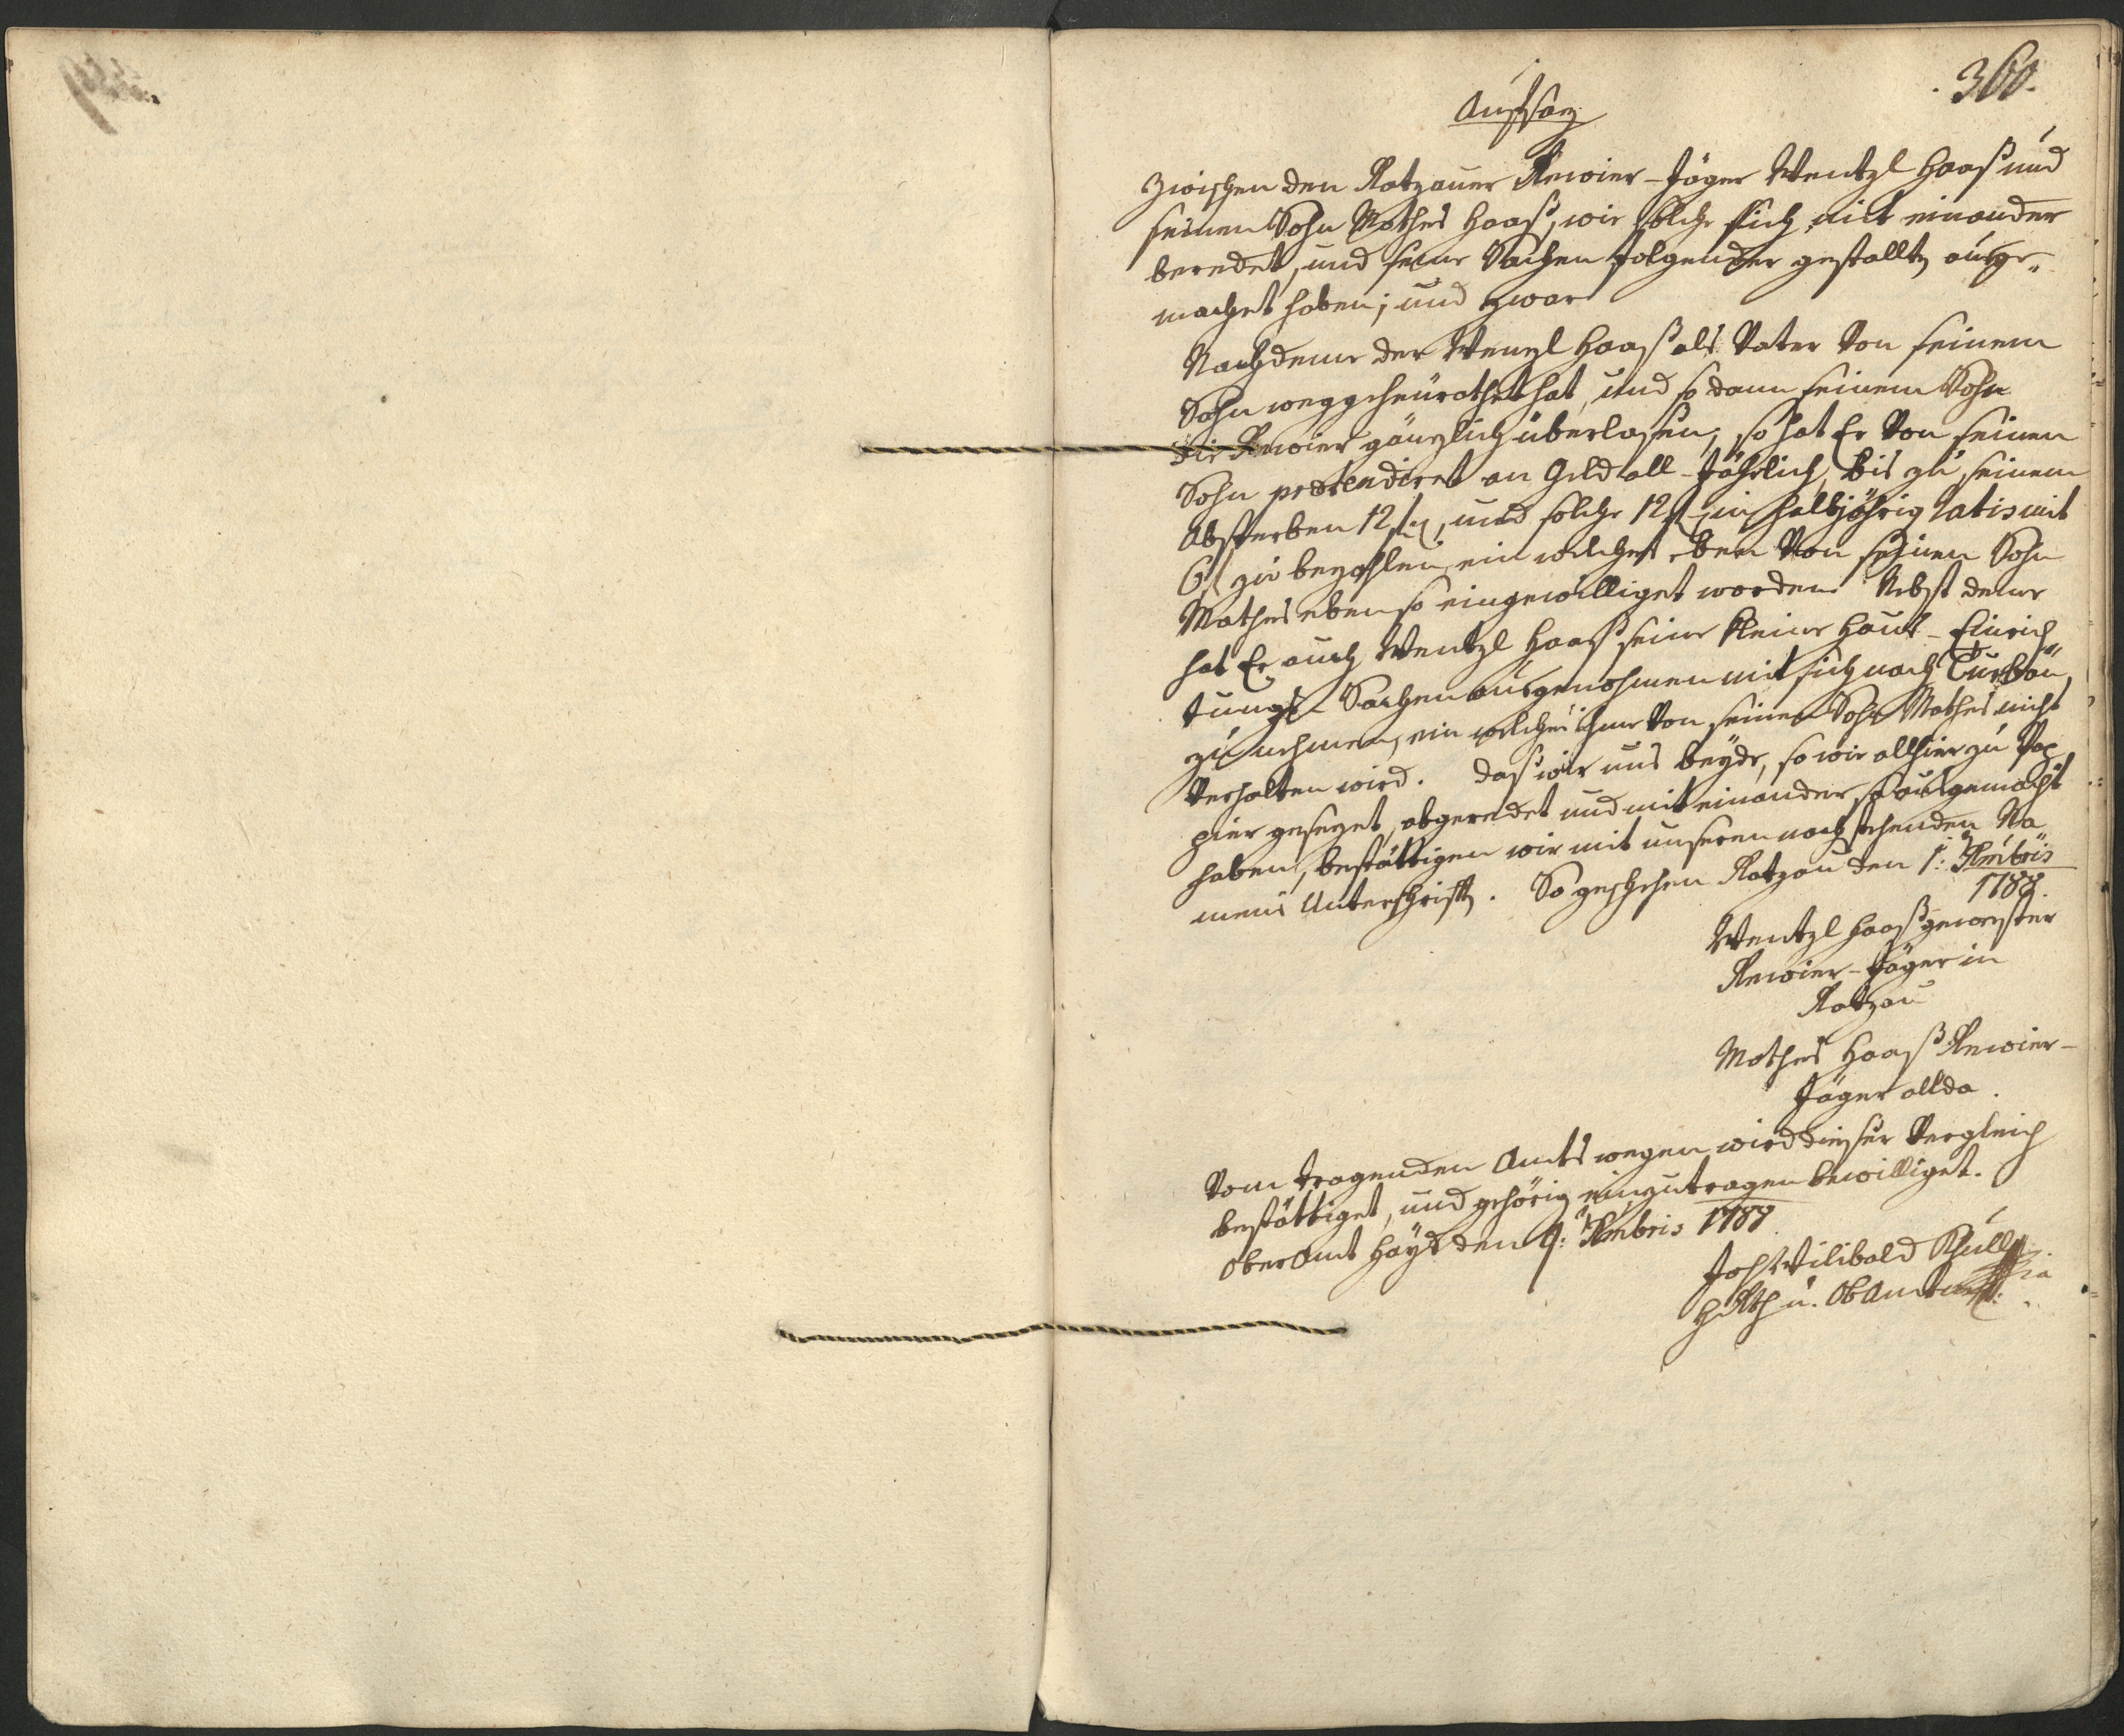 360.
Aufsatz
Zwischen den Ratzauer Revier-Jäger Wentzl Haaß und
seinen Sohn Mathes Haaß, wie solche sich mit einander
beredet, und seine Sachen folgender gestallt ausge„
machet haben; und zwar
Nachdeme der Wenzl Haaß als Vater Von seinem
Sohn weggeheürathet hat, und so dann seinem Sohn
die Revier gänzlich überlasen, so hat Er Von seinen
Sohn praetendiret an Geld all-Jährlich bis zu seinem
Absterben 12 f, und solche 12 f in halbjährig ratis mit
6 f zu bezahlen, ein welches eben Von seinen Sohn
Mathes eben so eingewilliget worden. Nebst deme
hat Er auch Wentzl Haaß seine kleine Hauß-Einrich„
tungs-Sachen ausgenohmen mit sich nach
zu nehmen, ein welches ihme Von seinen Sohn Mathes nicht
Verhalten wird. Daß wir uns beyde, so wie allhier zu Pap
pier gesezet, abgeredet und mit einander so ausgemacht
haben, bestättigen wir mit unseren nachstehenden Na
mens Unterschrifft. So geschehen Ratzau den 1: Xmbris
1788.
Wentzl Haaß gewester
Revier-Jäger in
Ratzau
Mathes Haaß Revier-
Jäger allda.
Vom tragenden Amts wegen wird dieser Vergleich
bestättiget, und gehörig einzutragen bewilliget.
Oberamt Hayd den 9: Xmbris 1788
Joh Wilibald